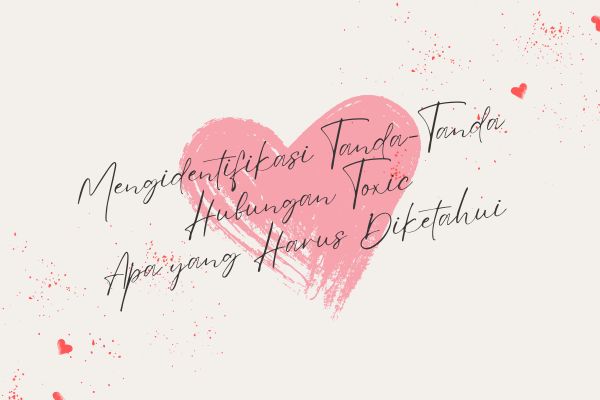 Mengidentifikasi Tanda-Tanda
Hubungan Toxic
Apa yang Harus Diketahui